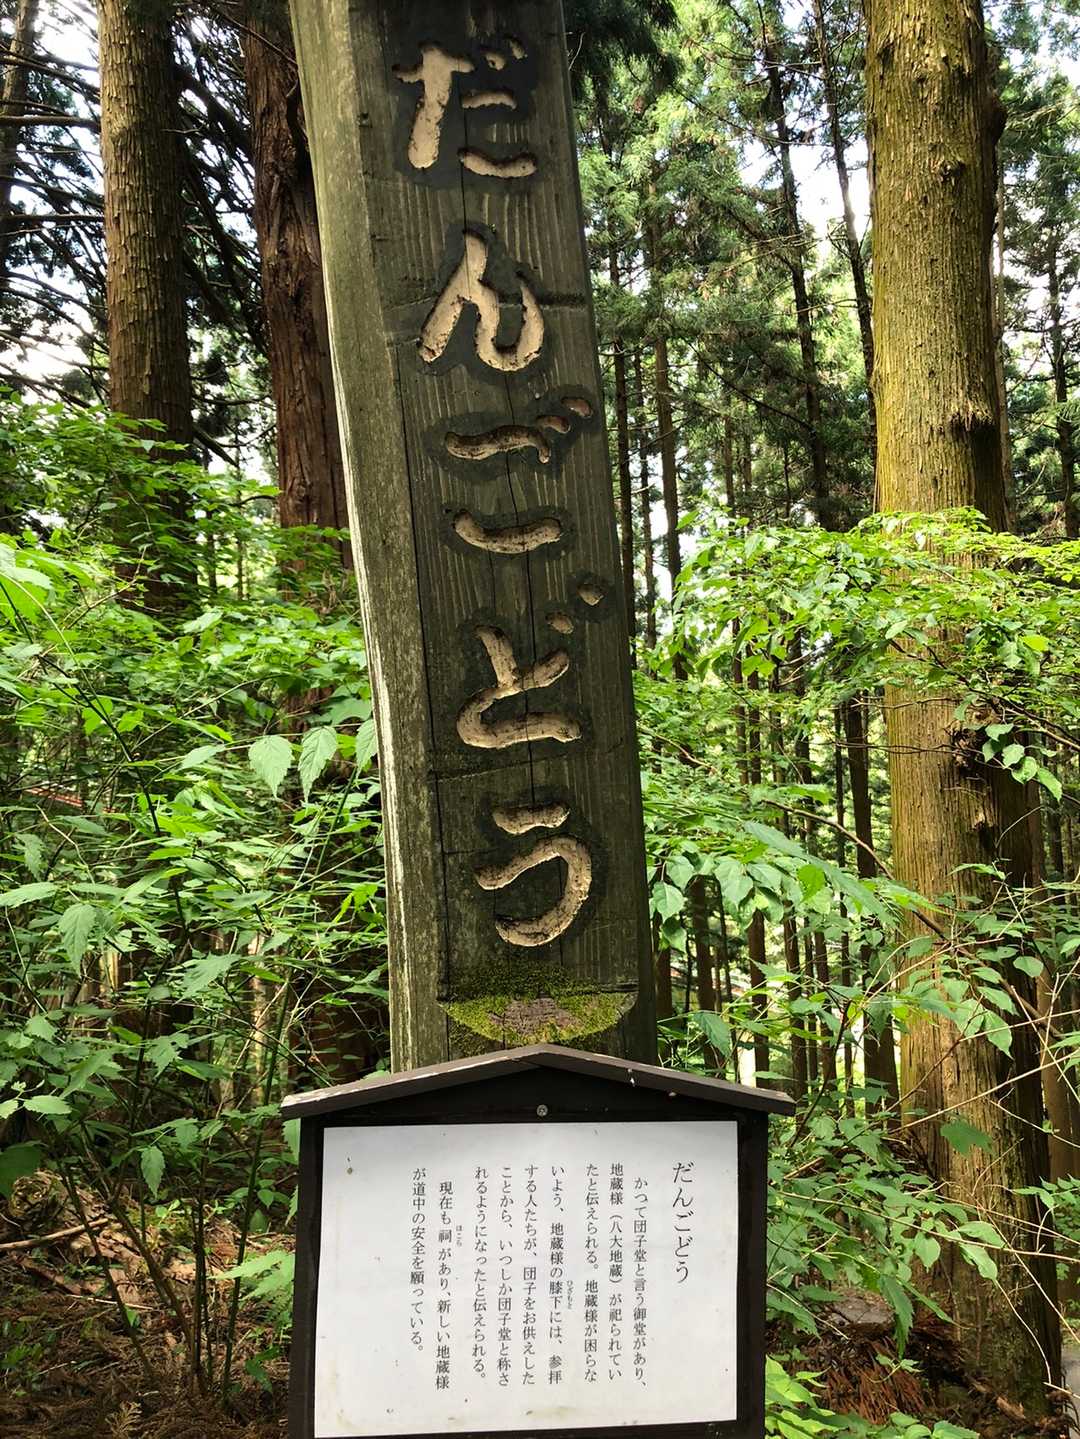 だんごどう
だんごどう
かつて団子堂と言う御堂があり、
地蔵様（八大地蔵）が祀られてい
たと伝えられる。地蔵様が困らな
いよう、地蔵様の膝下には、参拝
ひざもと
する人たちが、団子をお供えした
ことから、いつしか団子堂と称さ
れるようになったと伝えられる。
現在も祠があり、新しい地蔵様
ほこら
が道中の安全を願っている。